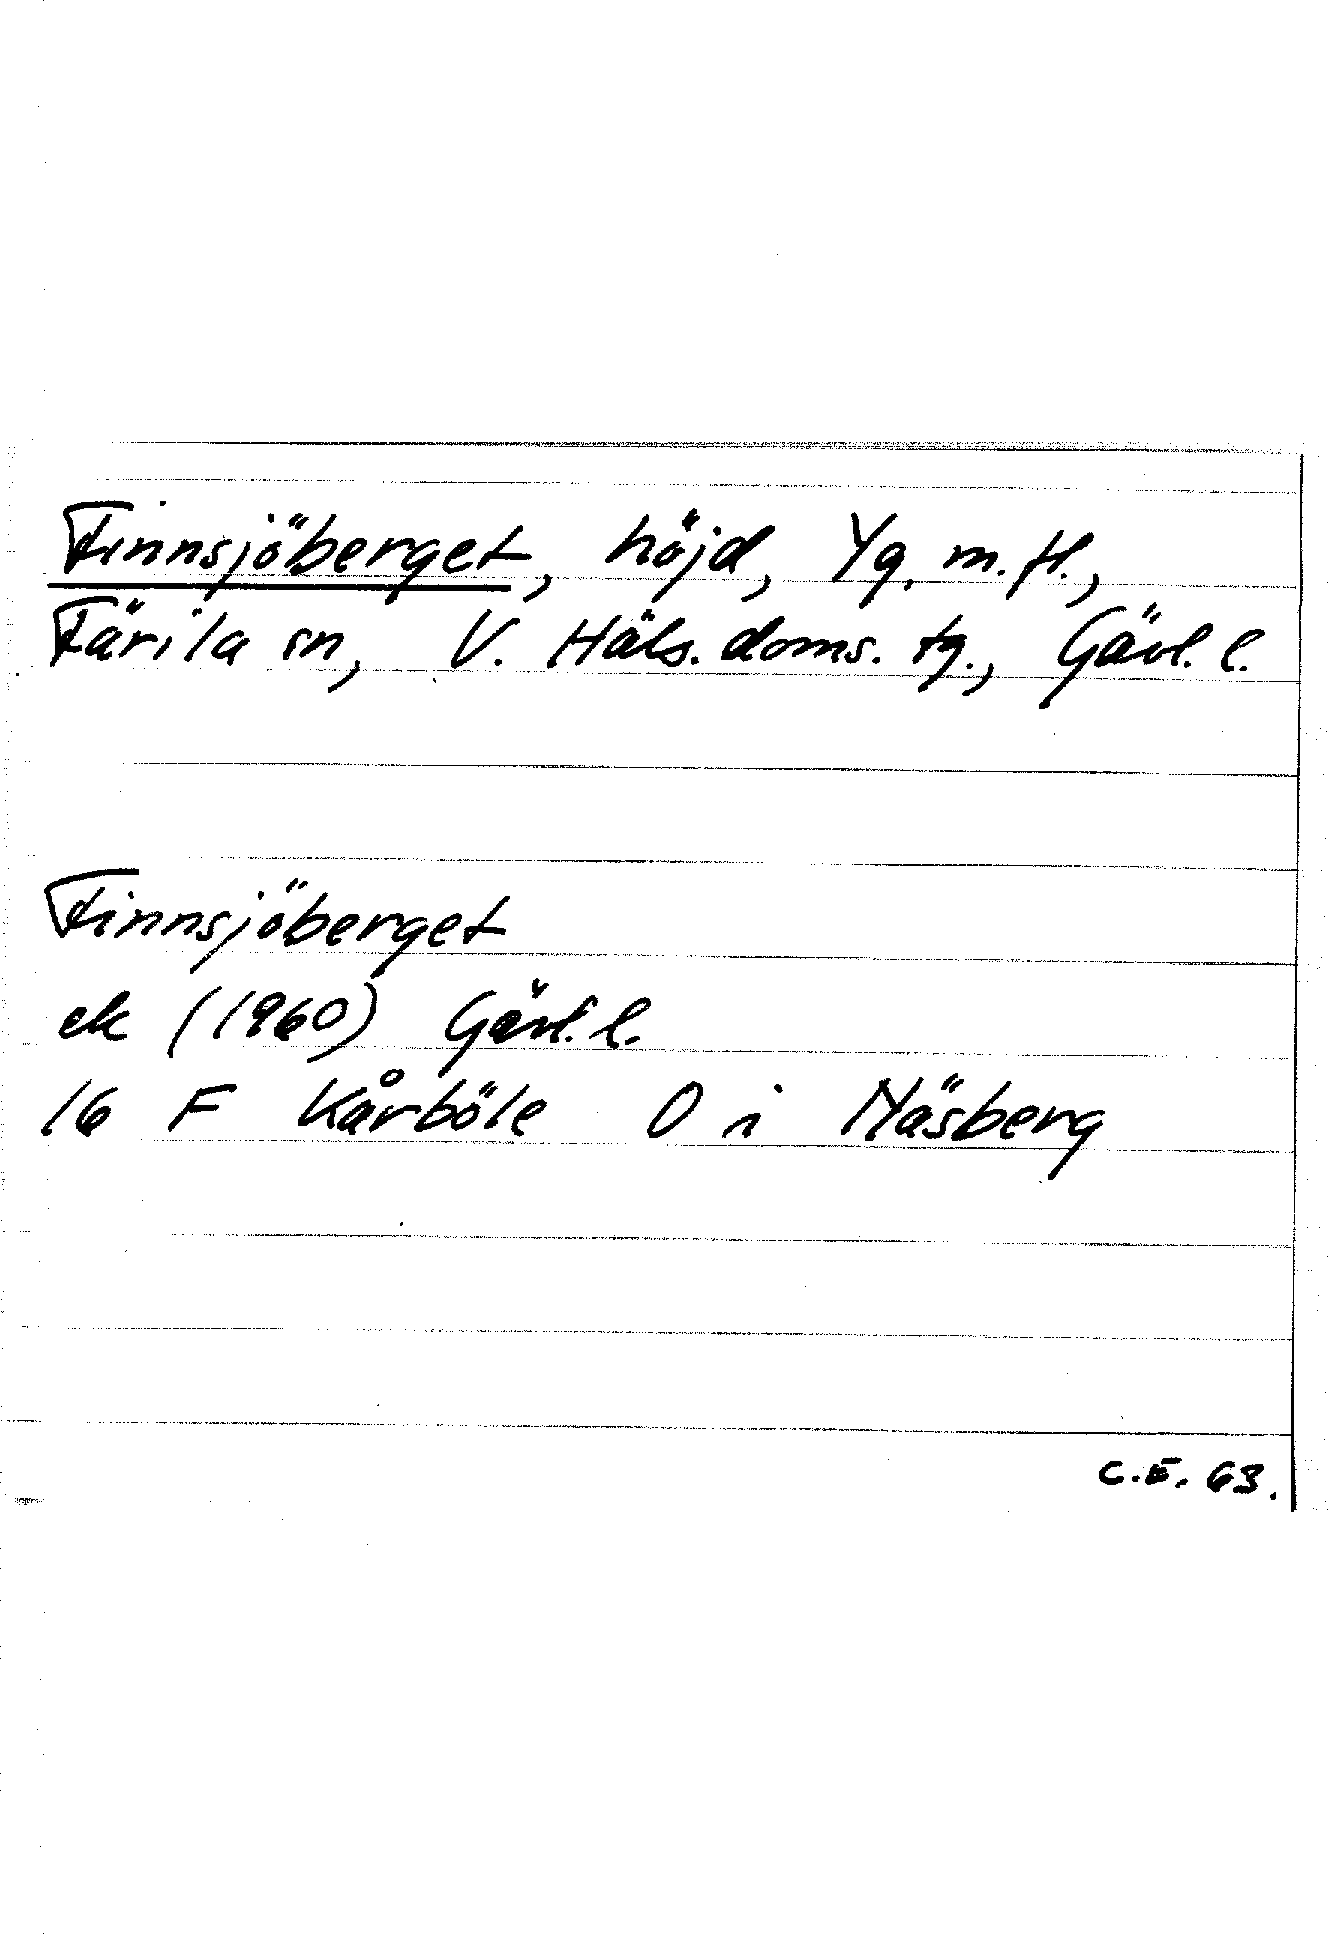 Finnsjöberget, höjd, Yg. m. fl.,
Färila sn, V. Häls. doms. tg., Gävl. l.
Finnsjöberget
ek (1960) Gävl. l.
16 F Kårböle O i Näsberg
C.E. 63.